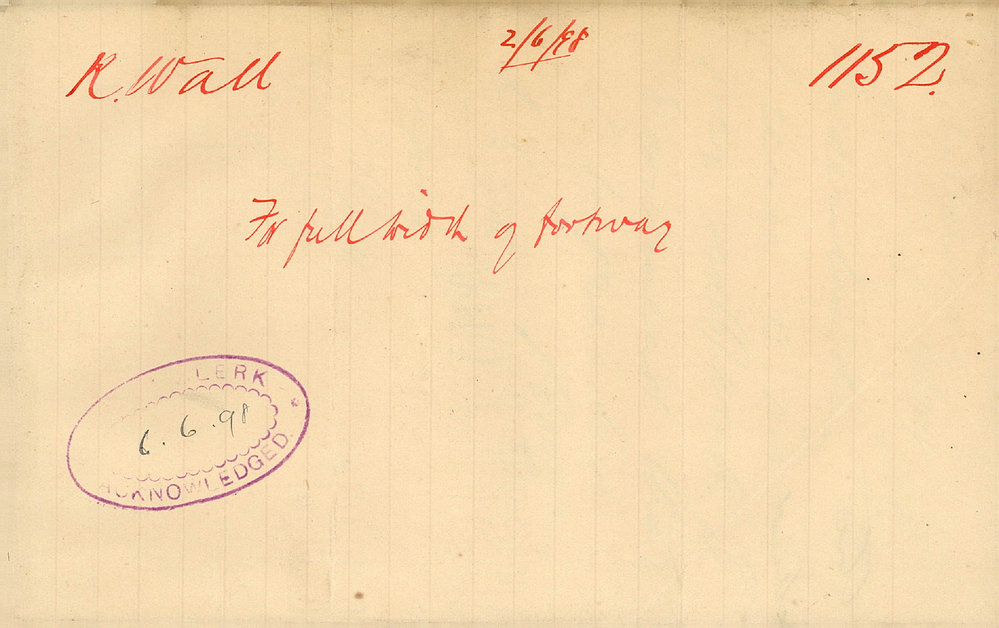 R. Wall
2/6/98
1152.
For full width of footway
LERK
6.6.98
ACKNOWLEDGED.